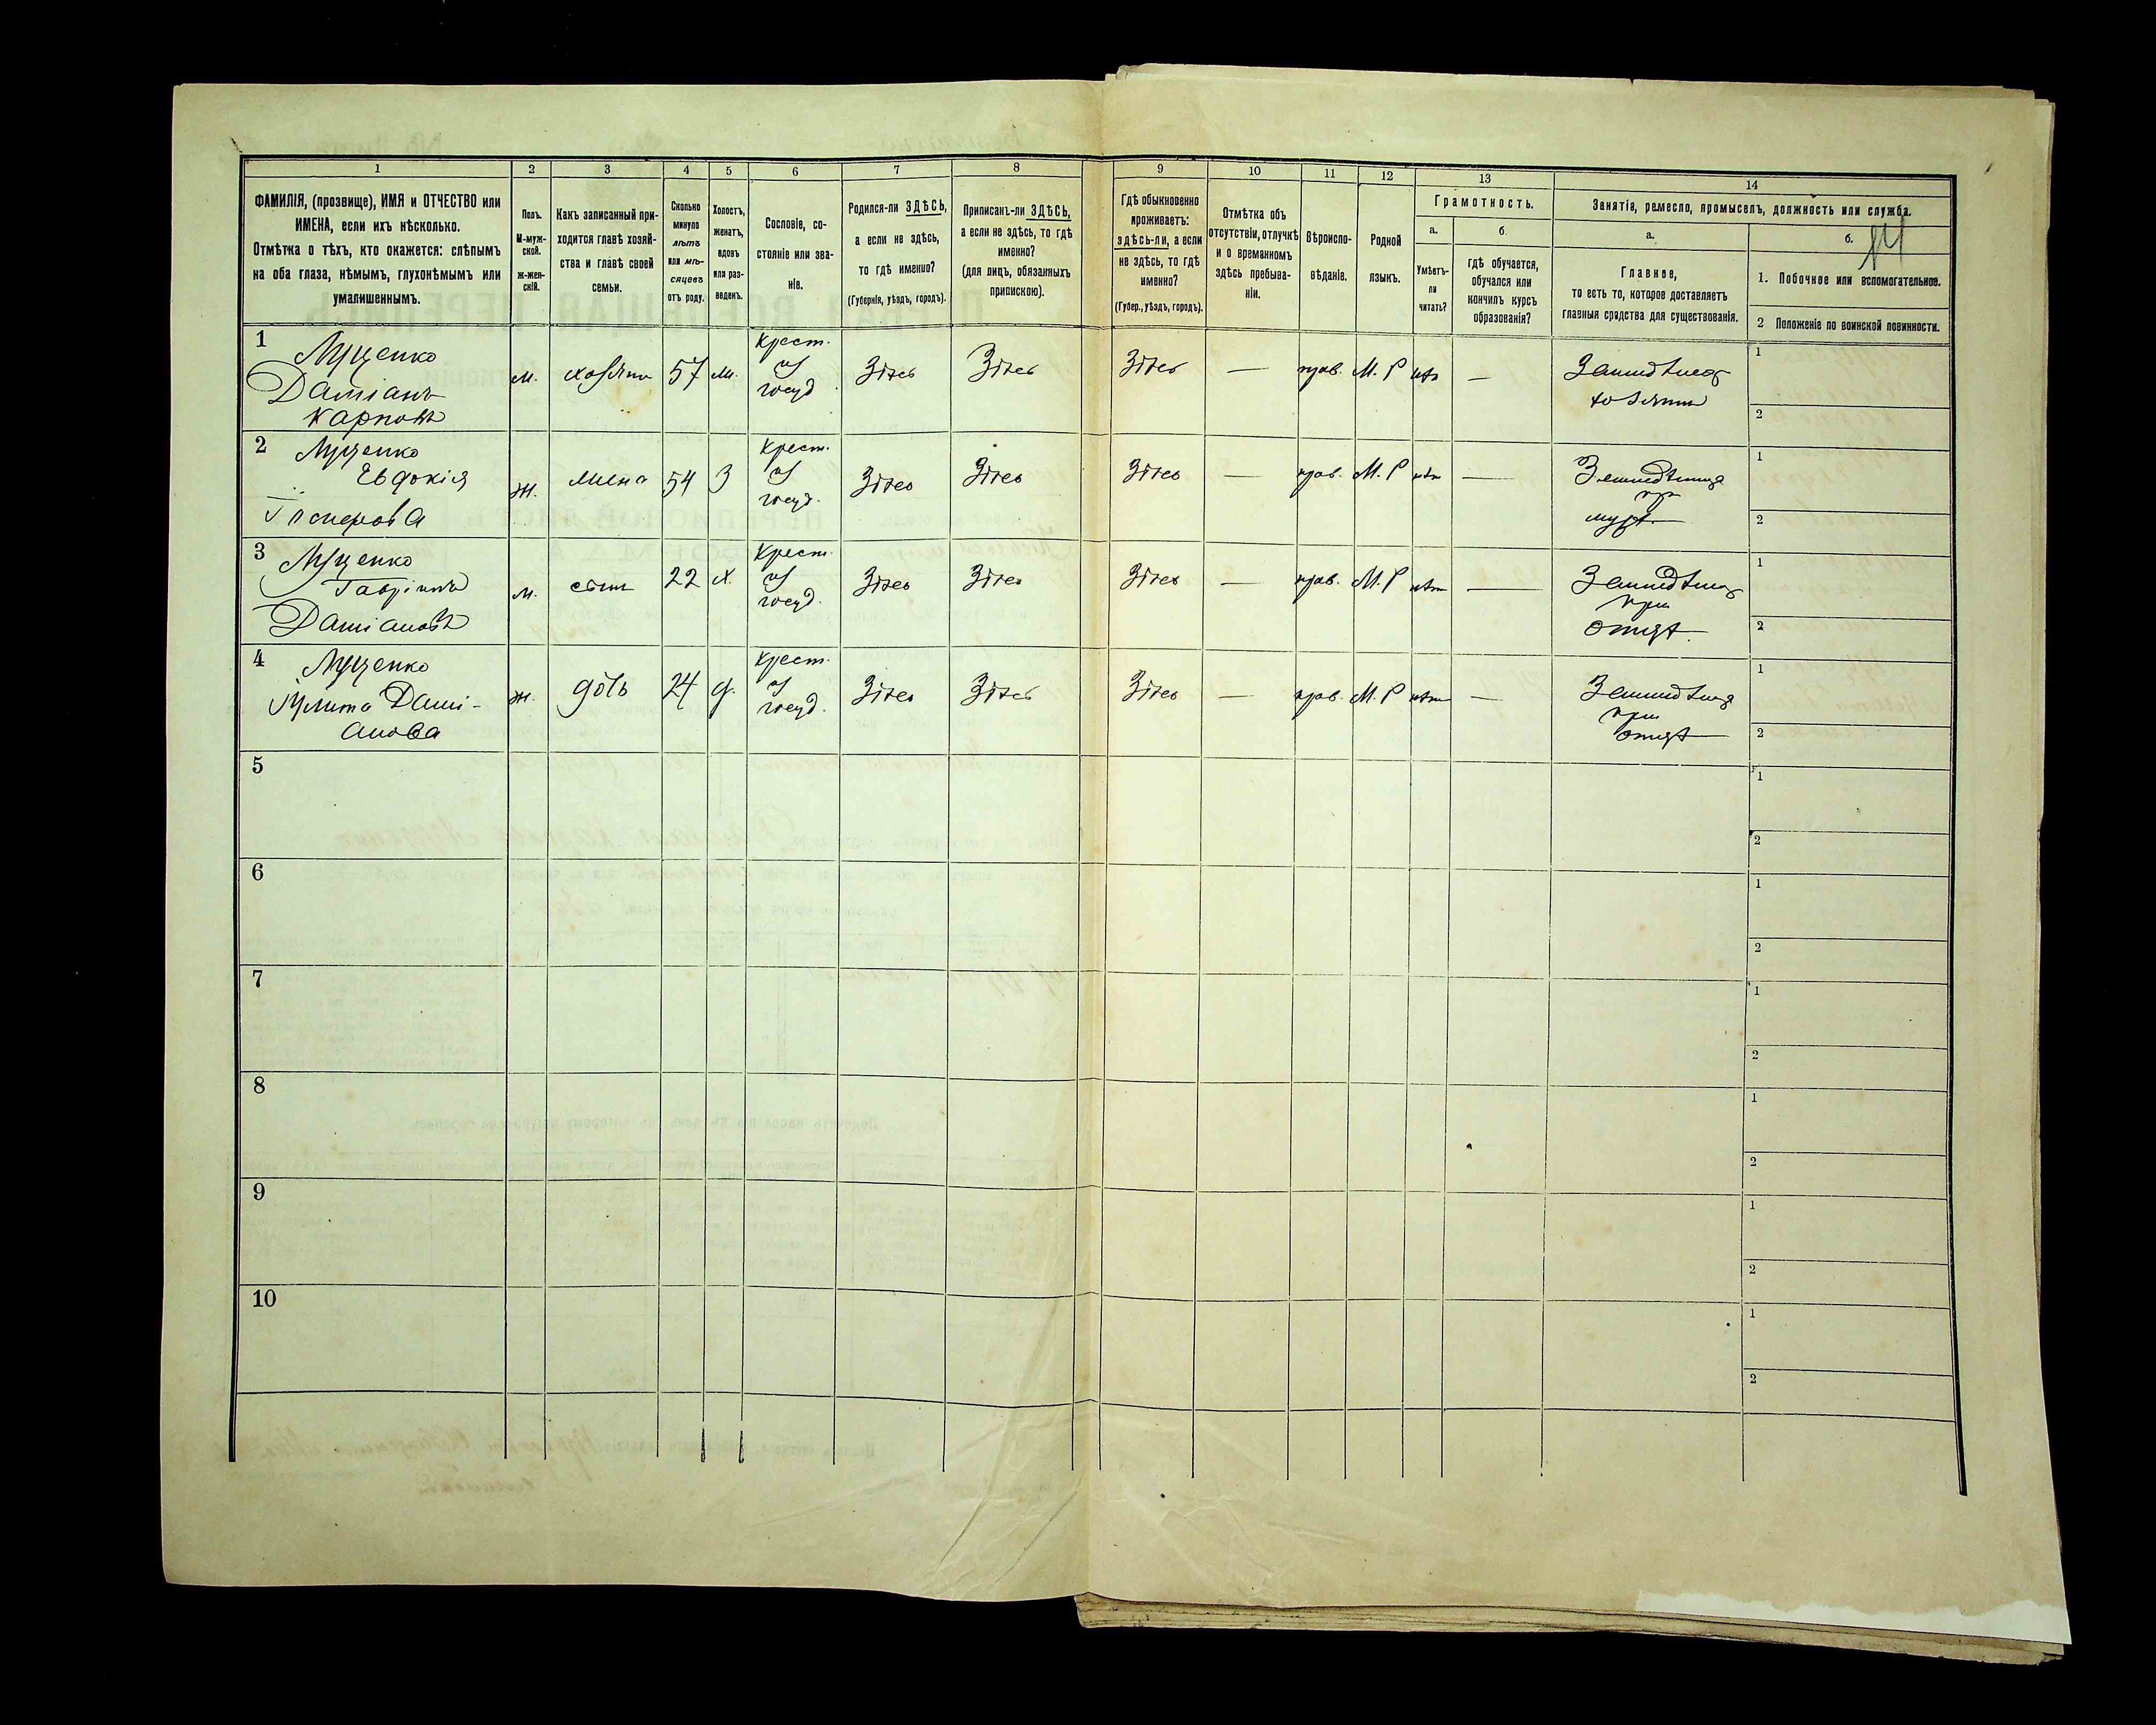 1
2
3
4
5
6
7
8
9
10
11
12
13
14
ФАМИЛІЯ, (прозвище), ИМЯ и ОТЧЕСТВО или
ИМЕНА, если ихъ нѣсколько.
Отмѣтка о тѣхъ, кто окажется: слѣпымъ
на оба глаза, нѣмымъ, глухонѣмымъ или
умалишеннымъ.
Полъ.
М-муж-
ской.
ж-жен-
скій.
Какъ записанный при-
ходится главѣ хозяй-
ства и главѣ своей
семьи.
Сколько
минуло
лѣтъ
или мѣ-
сяцевъ
отъ роду.
Холостъ,
женатъ,
вдовъ
или раз-
веденъ.
Сословіе, со-
стояніе или зва-
ніе.
Родился-ли ЗДѢСЬ,
а если не здѣсь,
то гдѣ именно?
(Губернія, уѣздъ, городъ).
Приписанъ-ли ЗДѢСЬ,
а если не здѣсь, то гдѣ
именно?
(для лицъ, обязанныхъ
припискою).
Гдѣ обыкновенно
проживаетъ:
здѣсь-ли, а если
не здѣсь, то гдѣ
именно?
(Губер., уѣздъ, городъ).
Отмѣтка объ
отсутствіи, отлучкѣ
и о временномъ
здѣсь пребыва-
ніи.
Вѣроиспо-
вѣданіе.
Родной
языкъ.
Грамотность.
а.
Умѣетъ-
ли
читать?
б.
гдѣ обучается,
обучался или
кончилъ курсъ
образованія?
Занятія, ремесло, промыселъ, должность или служба.
а.
Главное,
то есть то, которое доставляетъ
главныя средства для существованія.
б.
1. Побочное или вспомогательное.
2 Положеніе по воинской повинности.
1
Луценко
Даміанъ
Карповъ
м.
хозяинъ
57
крест.
из
госуд.
Здесь
Здесь
Здесь
—
прав.
М. Р
нѣт
—
хозяинъ
1
2
2
Луценко
Евдокія
ж.
жена
54
З
крест.
из
госуд.
Здесь
Здесь
Здесь
—
прав.
М. Р
нѣт
—
при
мужѣ
1
2
3
Луценко
Гавріилъ
Даміановъ
м.
сынъ
22
х.
крест.
из
госуд.
Здесь
Здесь
Здесь
—
прав.
М. Р
нѣт
—
при
отцѣ.
1
2
4
Луценко
Іулита Дамі-
анова
ж.
дочь
24
д.
крест.
из
госуд.
Здесь
Здесь
Здесь
—
прав.
М. Р
нѣт
—
при
отцѣ
1
2
5
1
2
6
1
2
7
1
2
8
1
2
9
1
2
10
1
2